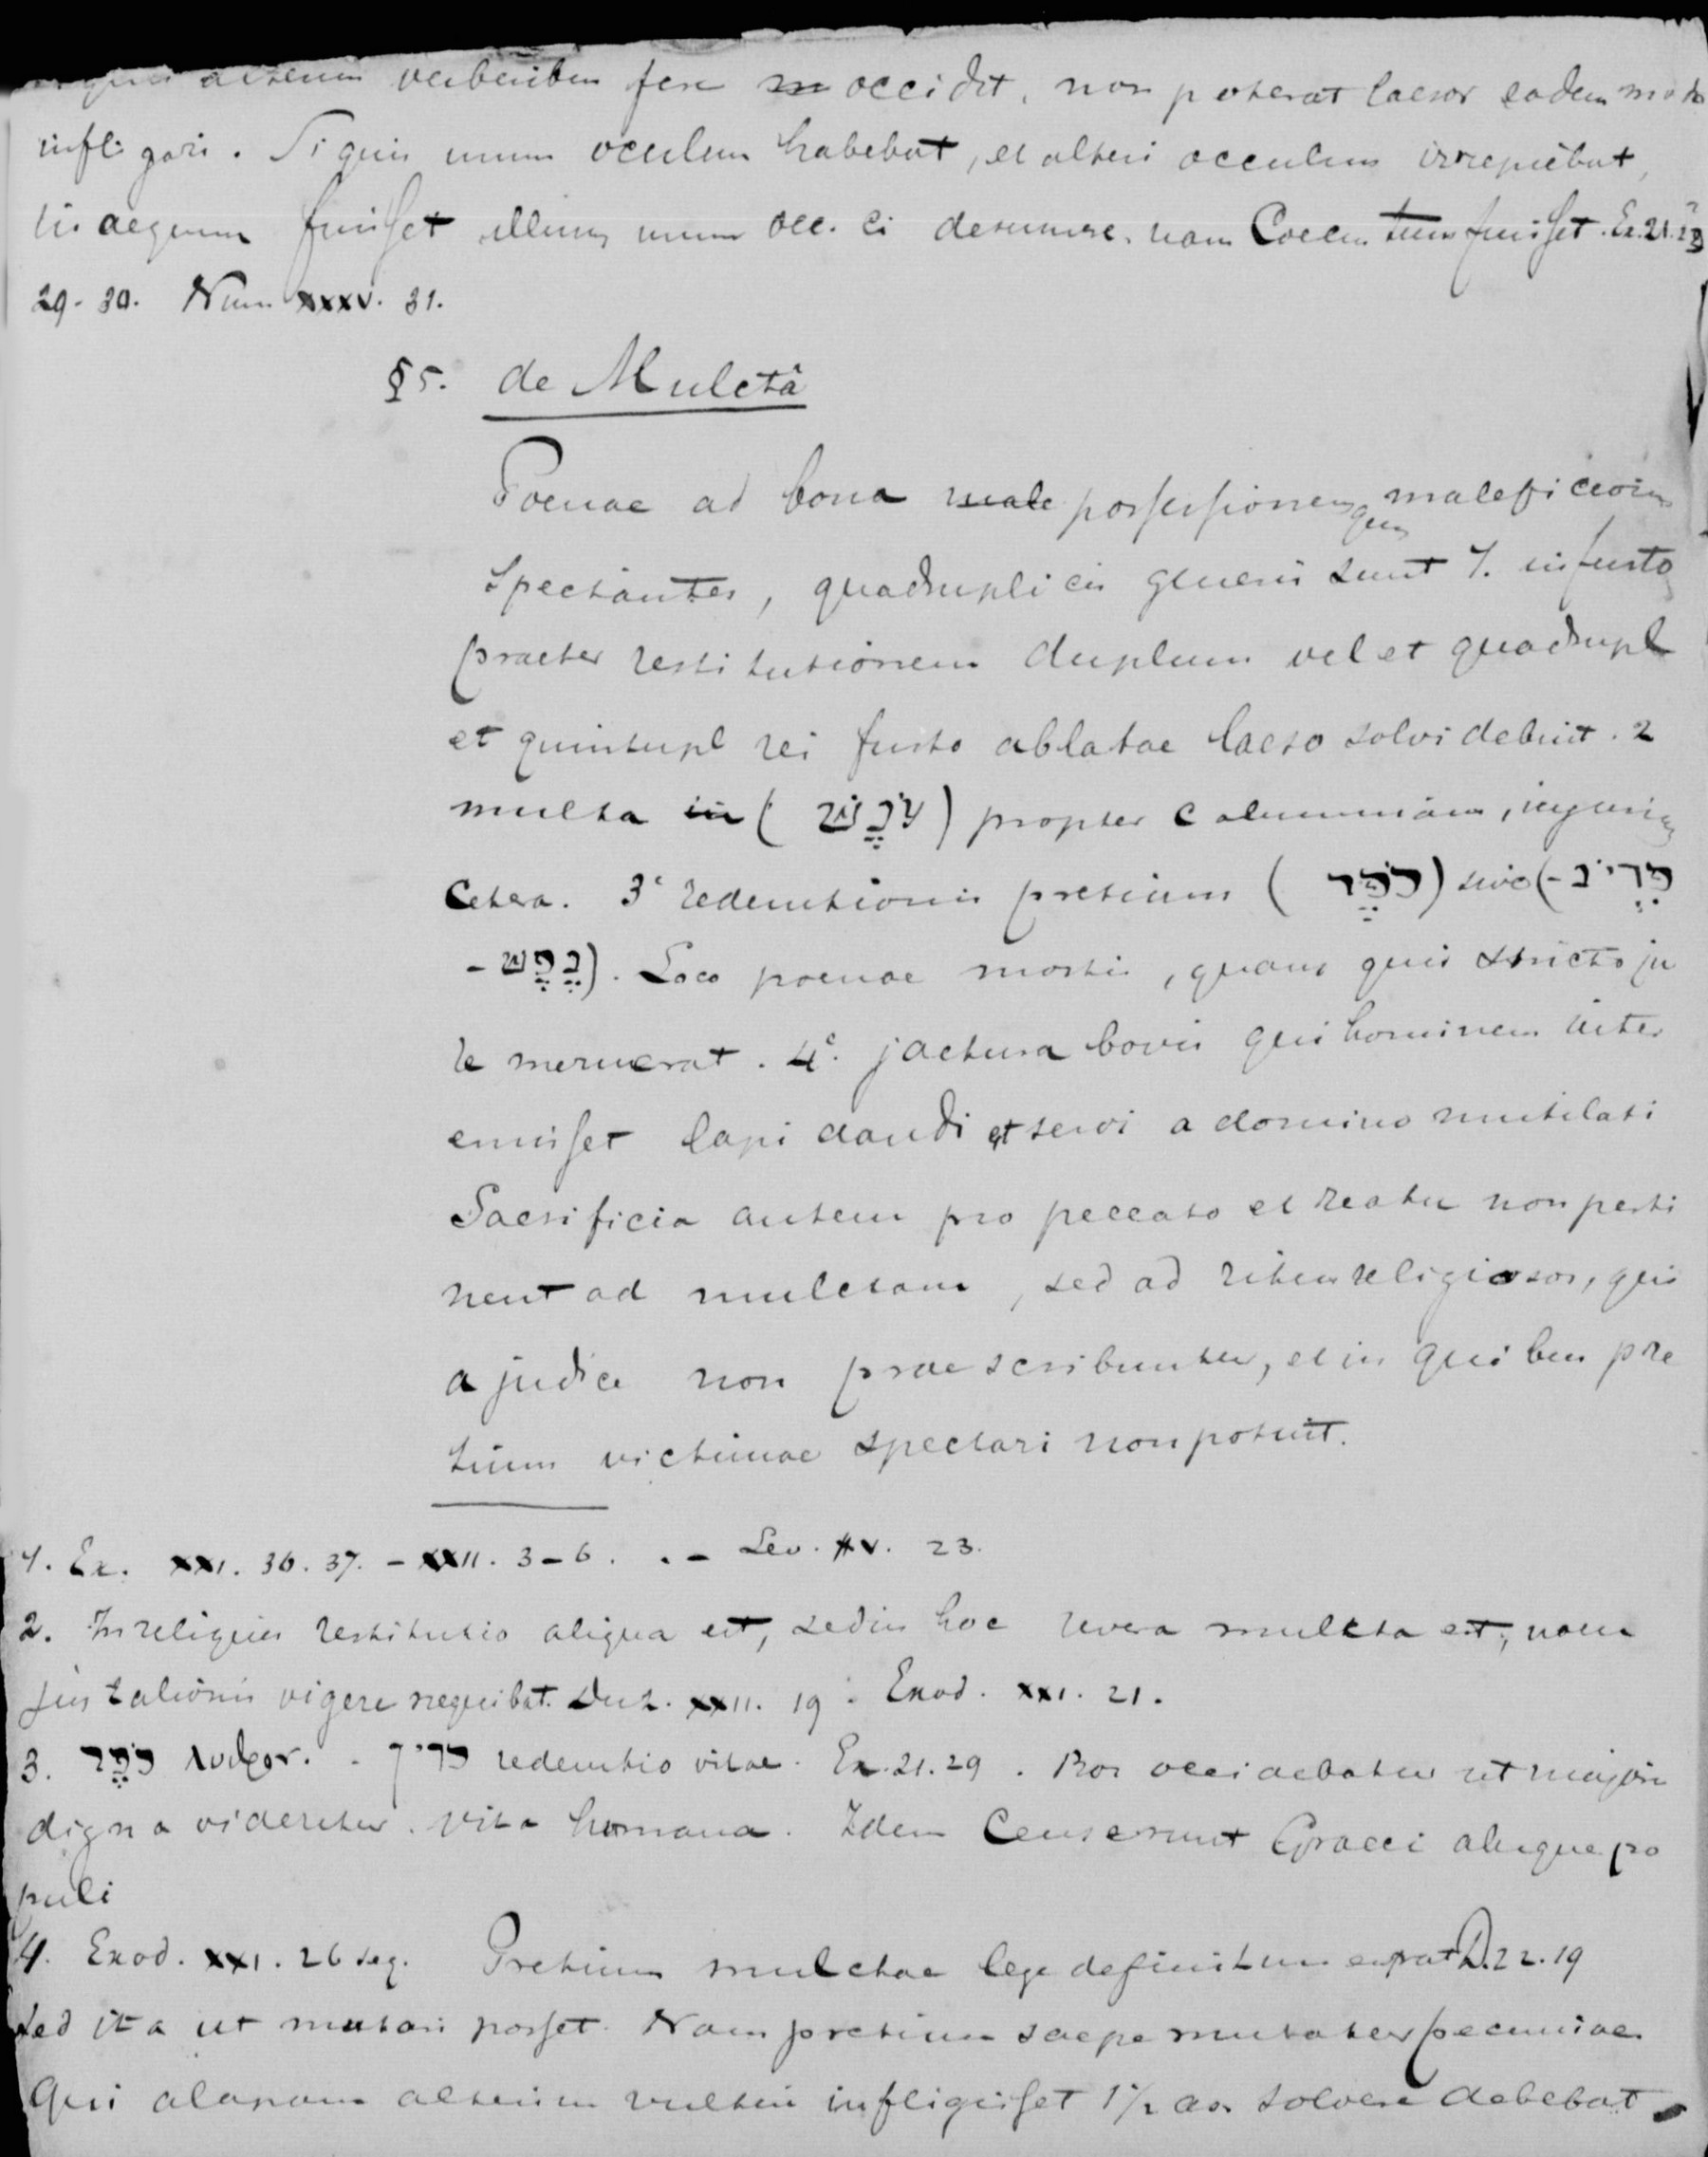 alterum verberibus fere occidit, non poterat laesor eadem modo
infligari. Si quis unum oculum habebat, et alteri occulum irrepiebat,
in aequum fuisset illius unum occ. ei desumere, nam Coecus tum fuisset. Ex. 21. 23
29-30. Num XXXV. 31.
§5. de Mulctâ
Poenae ad bona possessionemque maleficiorum
spectantes, quadruplicis generis sunt 1. in furto
praeter restitutionem duplum vel et quadrupl
et quintupl rei furto ablatae laeso solvi debuit. 2
multa (עֹנֶשׁ) propter calumniam, injuriam
cetera. 3° redemtionis pretium (כֹּפֶר) sive (פִּדְיֹן-
-נֶפֶשׁ). Loco poenae mortis, quam quis stricto ju
re meruerat. 4°. jactura bovis qui hominem inter
emisset lapidandi et servi a domino mutilati
Sacrificia autem pro peccato et reatu non perti
nent ad mulctam, sed ad ritus religiosos, qui
a judice non praescribuntur, et in quibus pre
tium victimae spectari non potuit.
1. Ex. XXI. 36. 37. - XXII. 3-6. . - Lev. XV. 23.
2. In reliquis restitutio aliqua est, sed in hoc revera mulcta est, nam
jus talionis vigere nequibat. Deut. XXII. 19. Exod. XXI. 21.
3. כֹּפֶר λυτρον. - פדין redemtio vitae. Ex. 21. 29. Bos occidebatur ut major
digna videretur vita humana. Idem Censerunt Graeci aliique po
puli
4. Exod. XXI. 26 seq. Pretium mulctae lege definitum erat D. 22. 19
sed ita ut mutari posset. Nam pretium saepe mutatur pecuniae.
Qui alapam alterius vultui infligisset 1/2 as. solvere debebat.